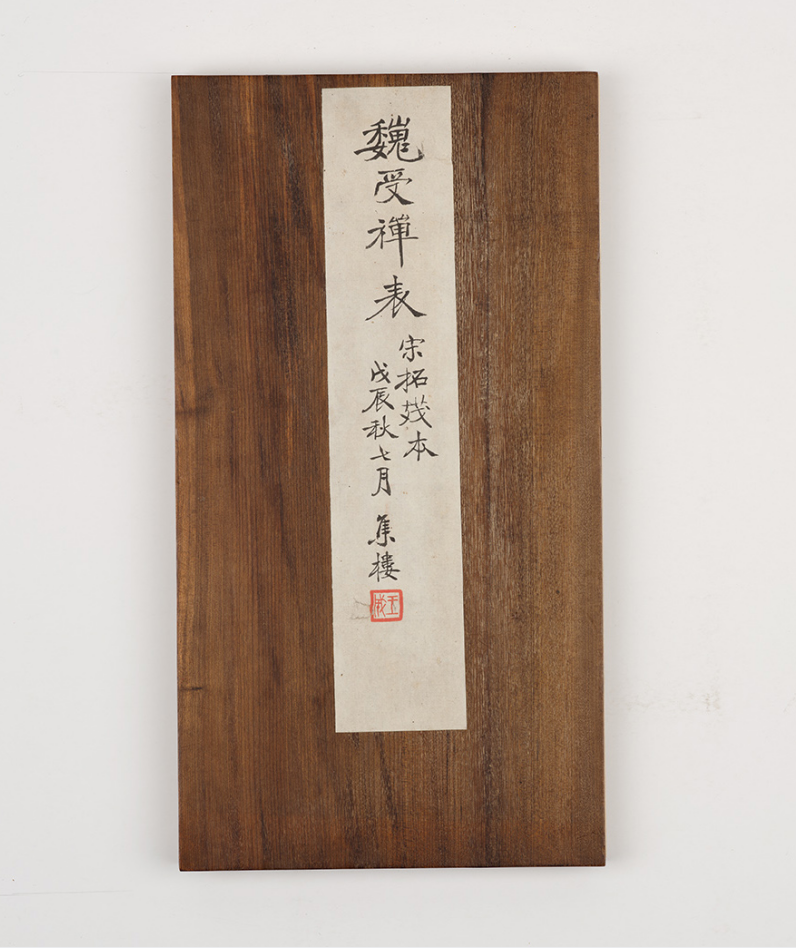 魏受禪表
宋拓殘本
戊辰秋七月 集樓